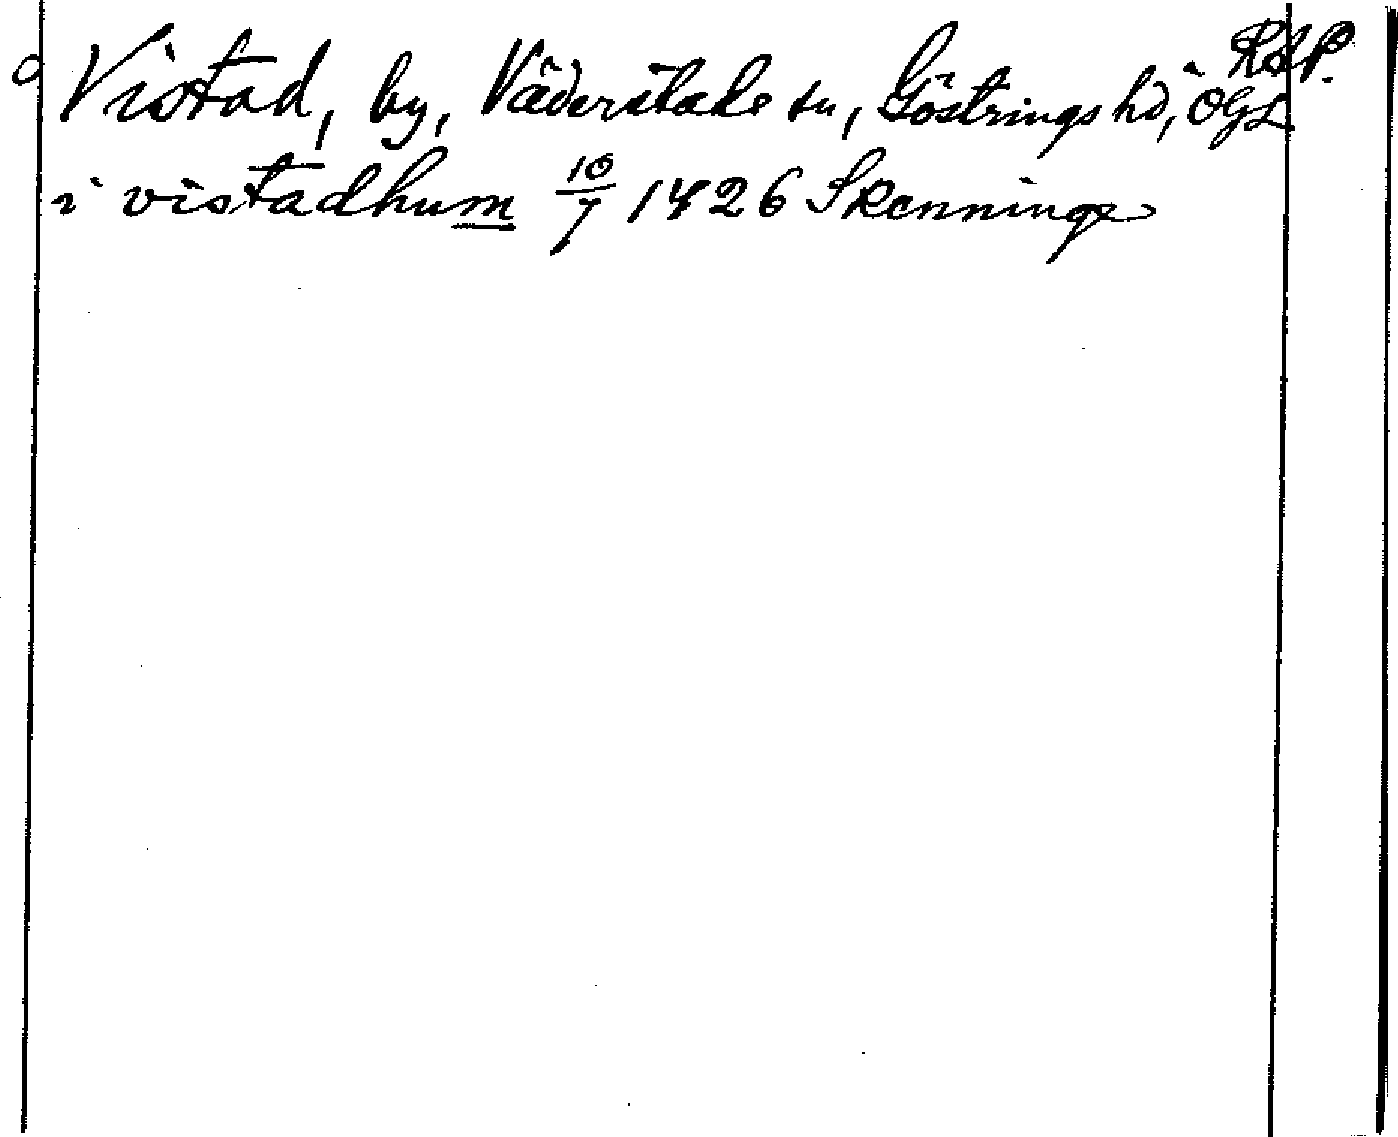 RAP.
Vistad, by, Väderstads sn, Göstrings hd, ÖGL
i vistadhum 10/7 1426 Skenninge